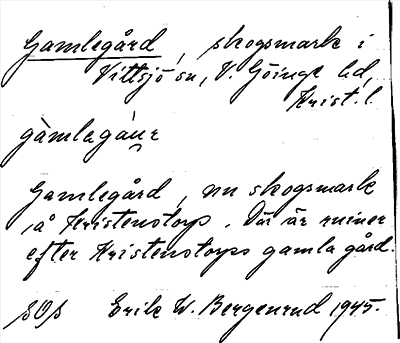 Gamlegård, skogsmark i
Vittsjö sn, V. Göinge hd,
Krist. l.
gàmlagá̀u̯r
Gamlegård, nu skogsmark
å Kristenstorp. Där är ruiner
efter Kristenstorps gamla gård.
Erik W. Bergenrud 1945.